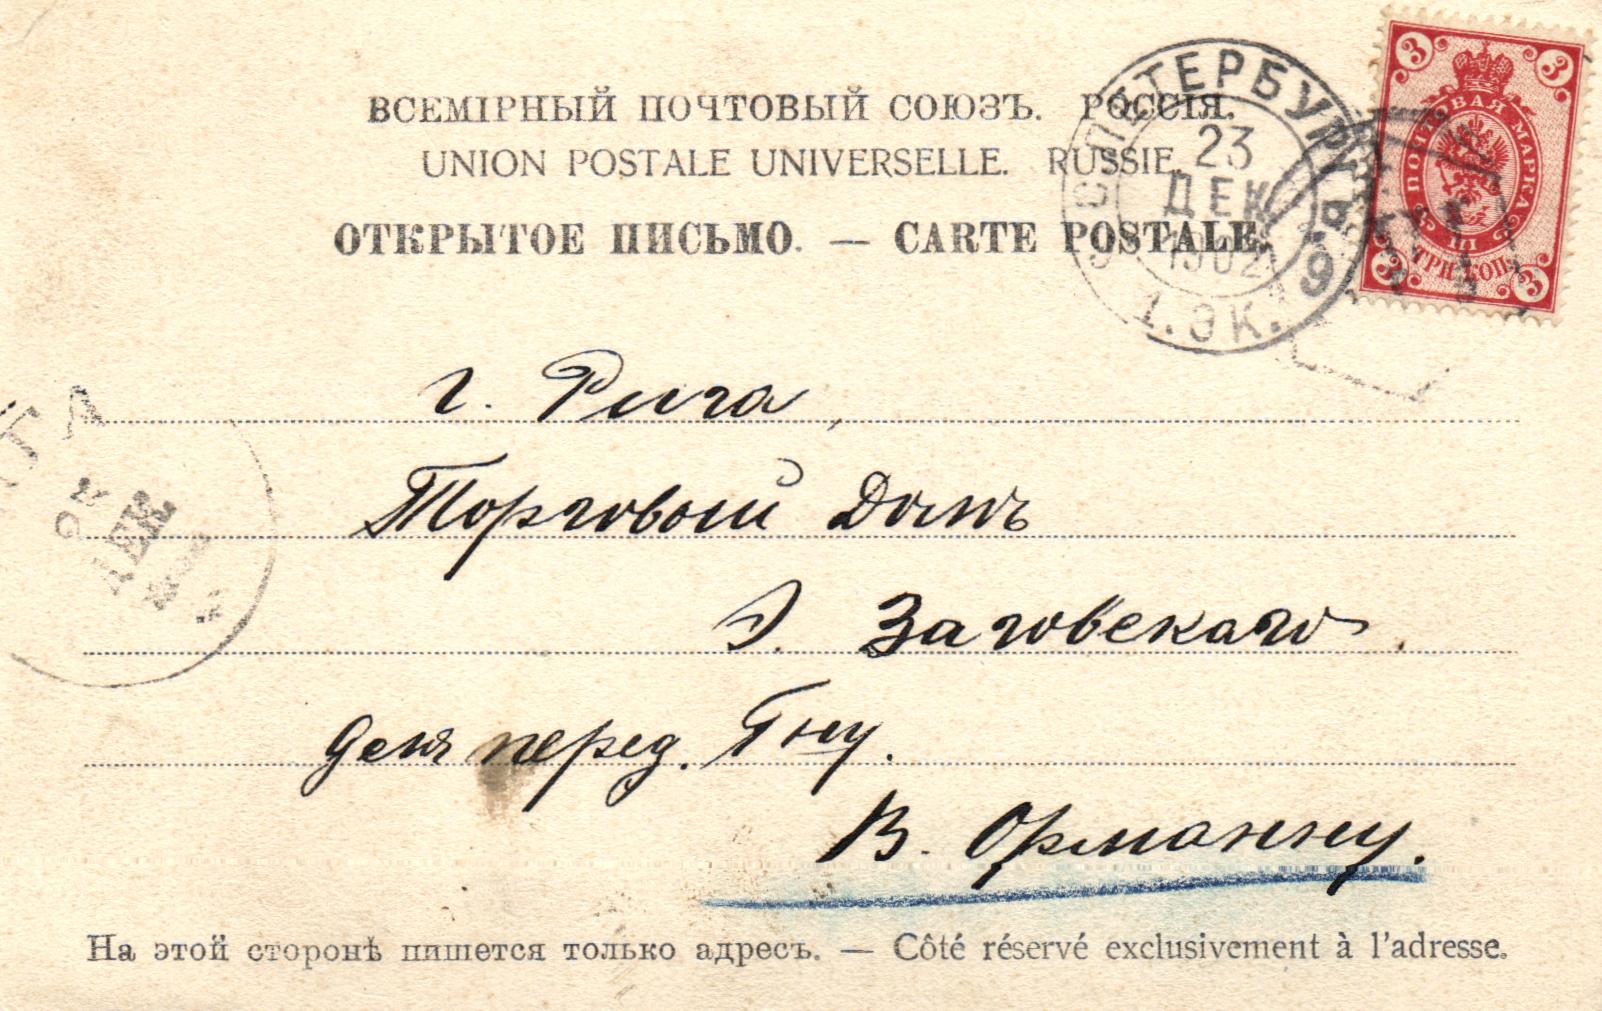 ВСЕМІРНЫЙ ПОЧТОВЫЙ СОЮЗЪ. РОССІЯ.
UNION POSTALE UNIVERSELLE. RUSSIE.
ОТКРЫТОЕ ПИСЬМО. — CARTE POSTALE.
С. ПЕТЕРБУРГЪ
23
ДЕК
1902
1. ЭК.
9
3 3
ПОЧТОВАЯ МАРКА
ТРИ КОП.
3 3
г. Рига,
Торговый Домъ
Э. Заговскаго.
для перед. Гну.
В. Орманну.
ДЕК
На этой сторонѣ пишется только адресъ. — Côté réservé exclusivement à l'adresse.